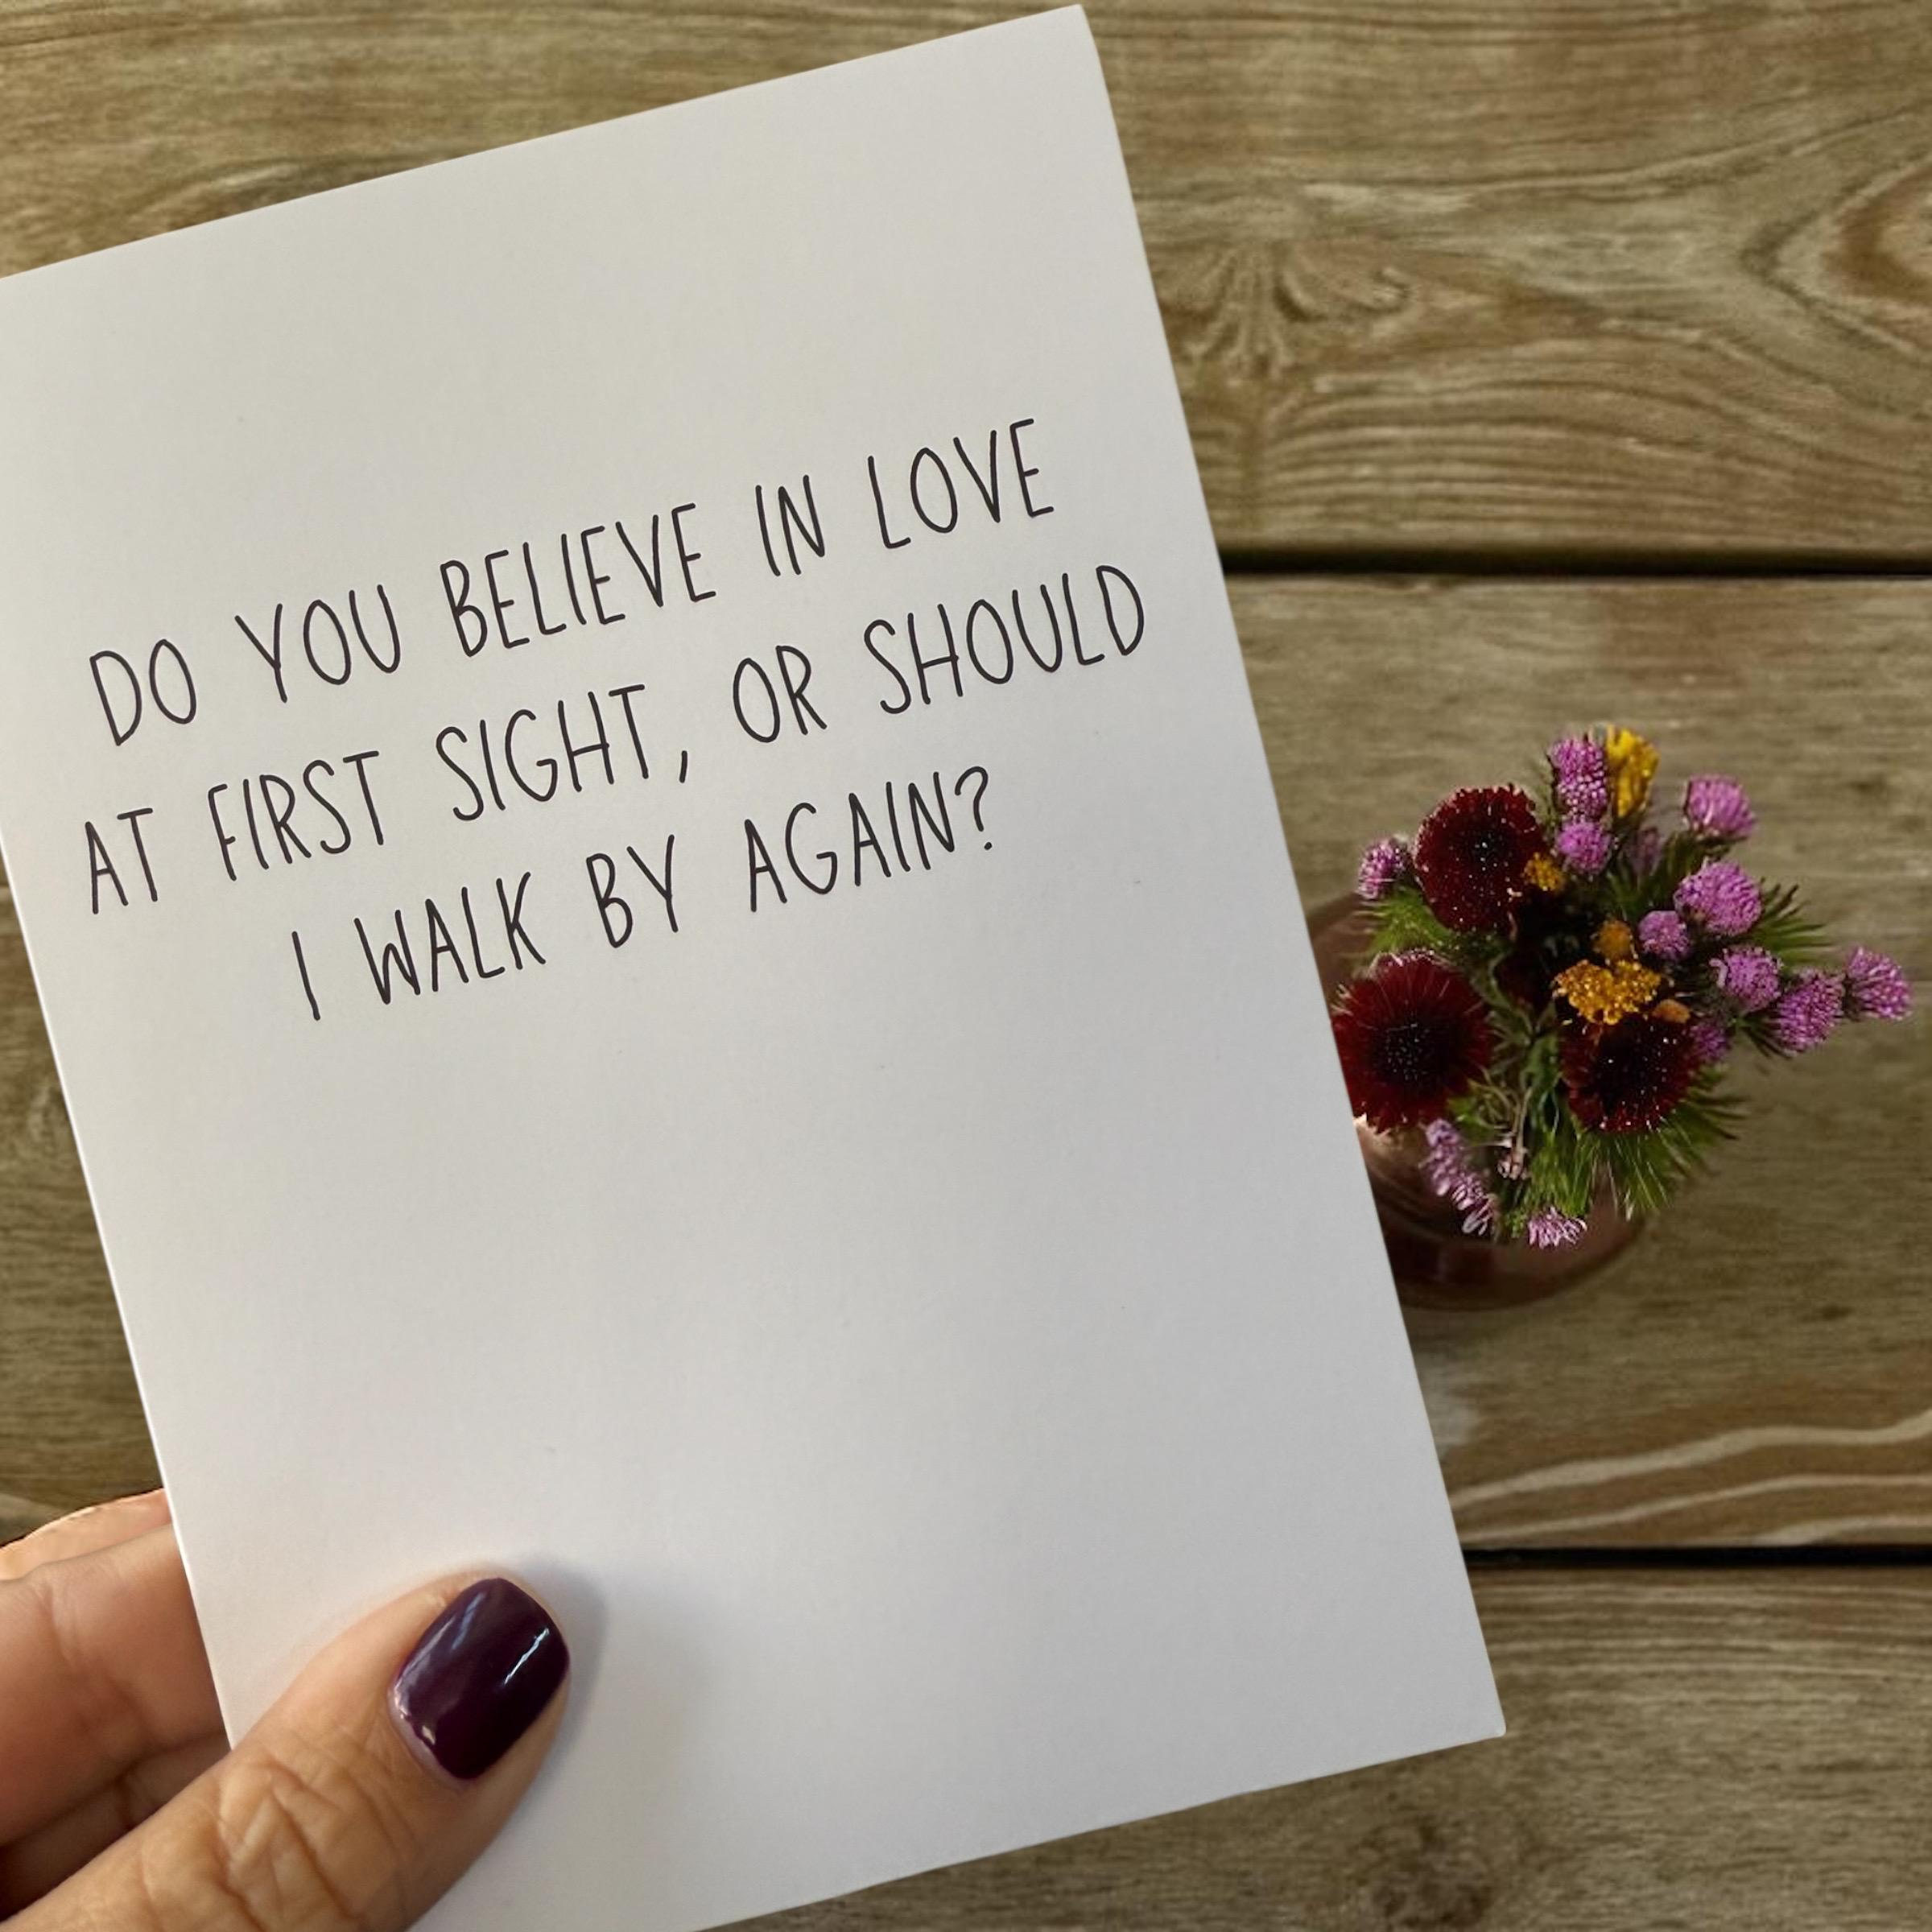 DO YOU BELIEVE IN LOVE
AT FIRST SIGHT, OR SHOULD
I WALK BY AGAIN?